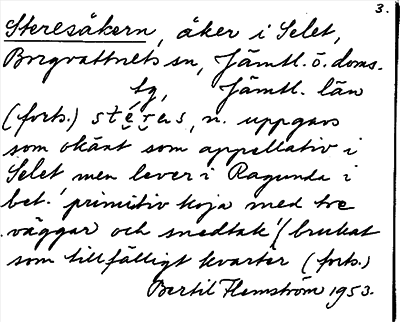 3.
Steresåkern, åker i Selet,
Borgvattnets sn, Jämtl. ö. doms.
tg, Jämtl. län
(forts.) stérus, n. uppgavs
som okänt som appellativ i
Selet men lever i Ragunda i
bet. 'primitiv koja med tre
väggar och snedtak' (brukat
som tillfälligt kvarter (forts.)
Bertil Flemström 1953.